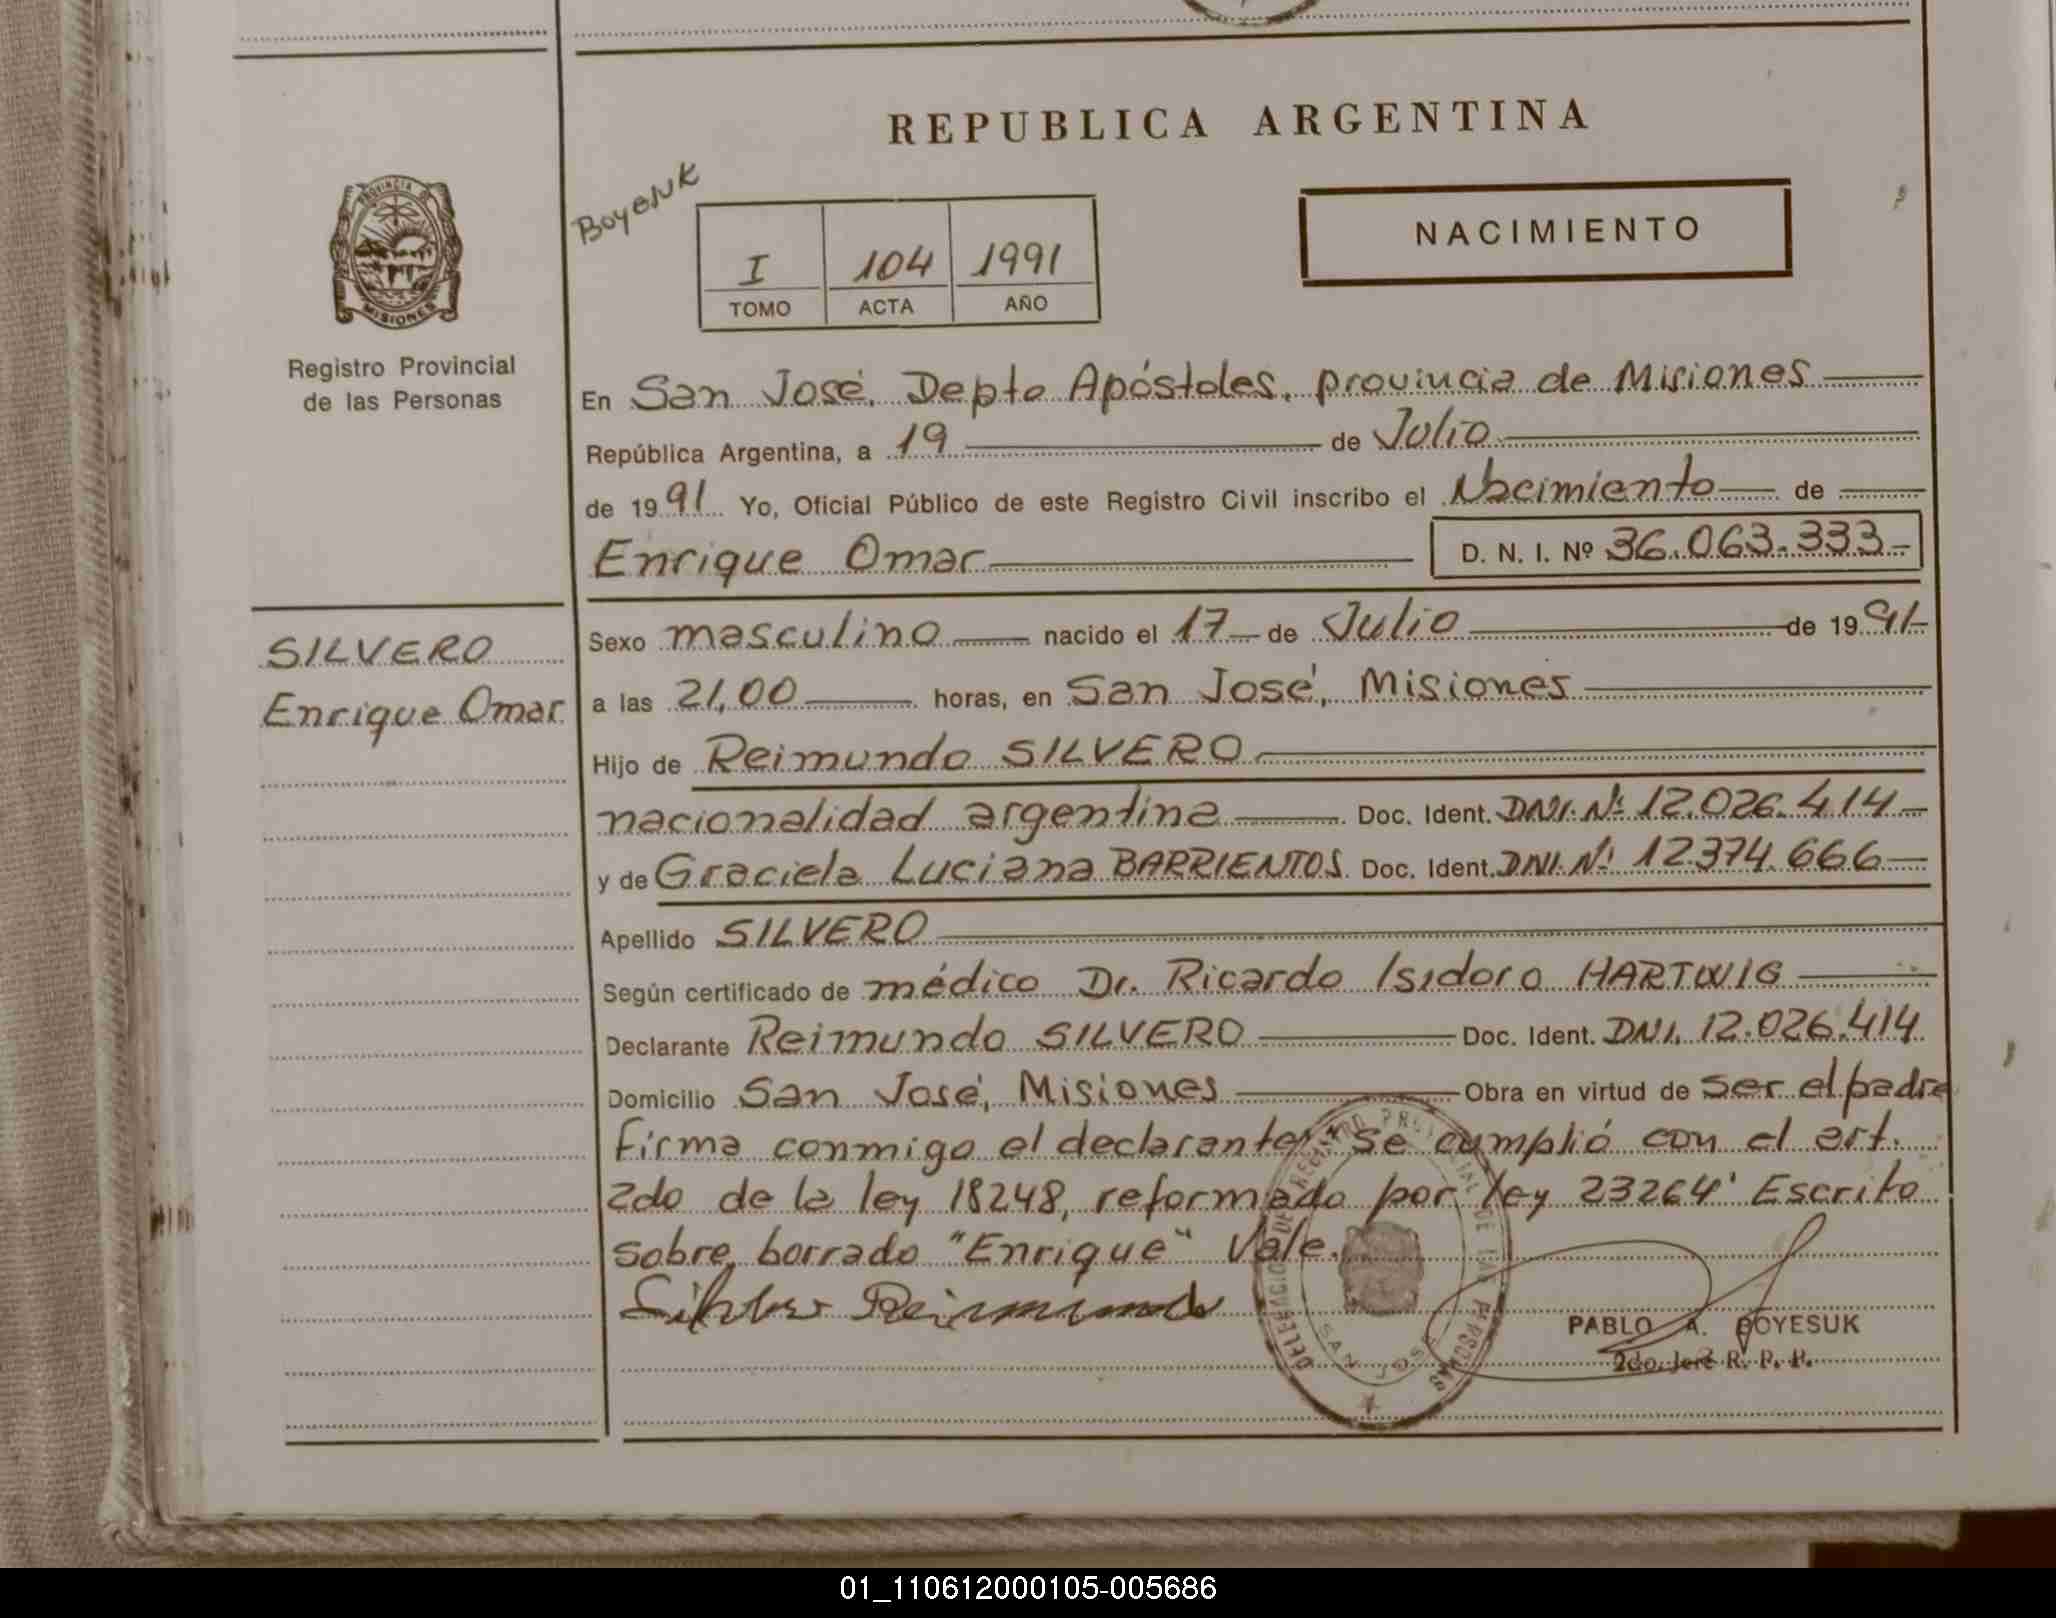 REPUBLICA ARGENTINA
Boyesuk
NACIMIENTO
I 104 1991
TOMO ACTA AÑO
PROVINCIA D
MISIONES
Registro Provincial
de las Personas
En San José, Depto Apóstoles, provincia de Misiones
República Argentina, a 19 de Julio
de 1991 Yo, Oficial Público de este Registro Civil inscribo el Nacimiento de
Enrique Omar D. N. I. Nº 36.063.333
SILVERO
Enrique Omar
Sexo masculino nacido el 17 de Julio de 1991
a las 21,00 horas, en San José, Misiones
Hijo de Reimundo SILVERO
nacionalidad argentina Doc. Ident. DNI. Nº 12.026.414
y de Graciela Luciana BARRIENTOS Doc. Ident. DNI. Nº 12.374.666
Apellido SILVERO
Según certificado de médico Dr. Ricardo Isidoro HARTWIG
Declarante Reimundo SILVERO Doc. Ident. DNI. 12.026.414
Domicilio San José, Misiones Obra en virtud de ser el padre
firma conmigo el declarante, se cumplió con el art.
2do de la ley 18248, reformado por ley 23264' Escrito
sobre borrado "Enrique" Vale.
Reimundo
DELEGACION DEL REGISTRO PROVINCIAL DE LAS PERSONAS
SAN JOSE
PABLO A. BOYESUK
2do. Jefe R. P. P.
01_110612000105-005686